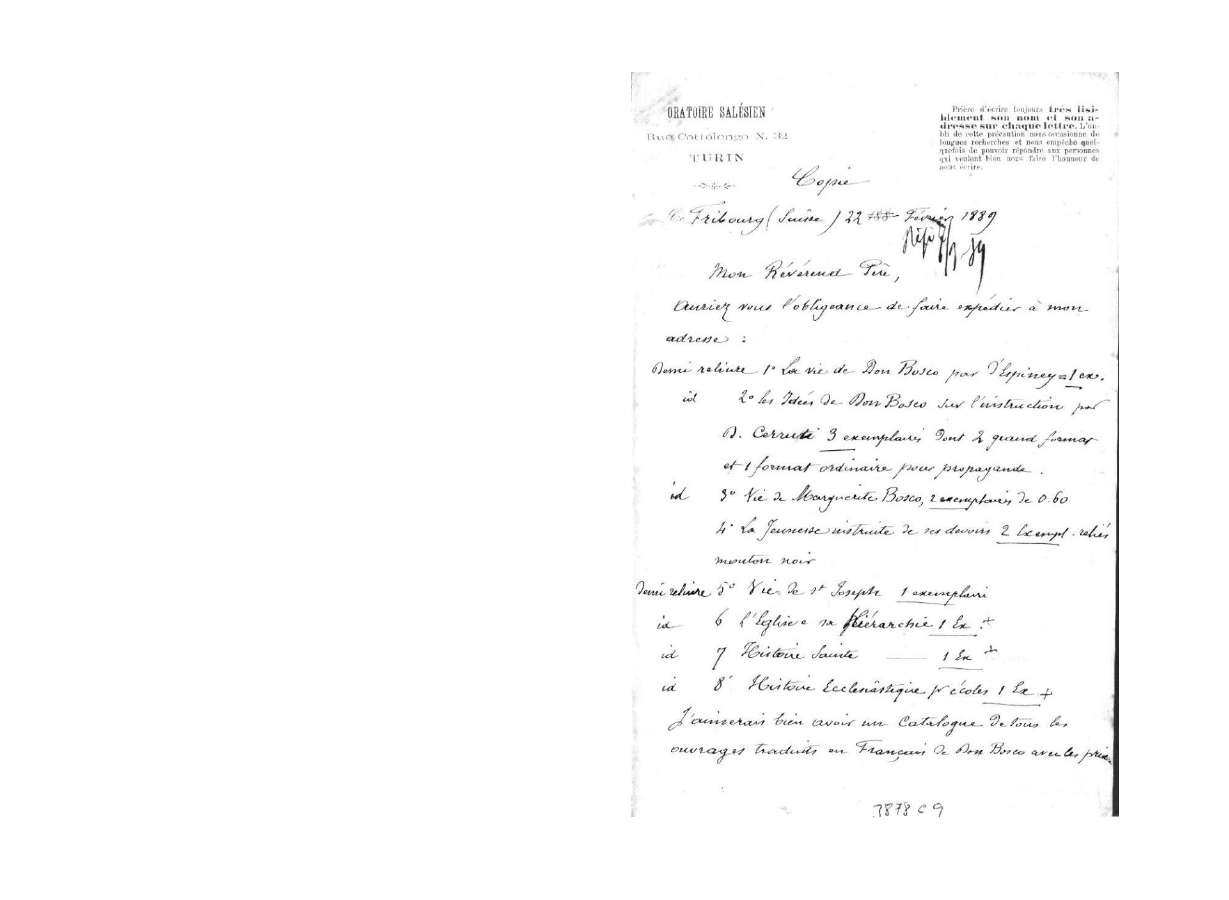 ORATOIRE SALÉSIEN
Rue Cottolengo N. 32
TURIN
Prière d'écrire toujours très lisi-
blement son nom et son a-
dresse sur chaque lettre. L'ou-
bli de cette précaution nous occasionne de
longues recherches et nous empêche quel-
quefois de pouvoir répondre aux personnes
qui veulent bien nous faire l'honneur de
nous écrire.
Copie
Fribourg (Suisse) 22 188 Février 1889
Mon Révérend Père,
Auriez vous l'obligeance de faire expédier à mon
adresse :
Demi reliure 1° La vie de Don Bosco par d'Espiney = 1 ex.
id 2° les Idées de Don Bosco sur l'instruction par
D. Cerruti 3 exemplaires dont 2 grand format
et 1 format ordinaire pour propagande.
id 3° Vie de Marguerite Bosco, 2 exemplaires de 0.60
4° La Jeunesse instruite de ses devoirs 2 Exempl. reliés
mouton noir
Demi reliure 5° Vie de St Joseph 1 exemplaire
id 6 L'Eglise e sa Hiérarchie 1 Ex +
id 7 Histoire Sainte — 1 Ex +
id 8° Histoire Ecclesiastique pr écoles 1 Ex +
J'aimerais bien avoir un Catalogue de tous les
ouvrages traduits en Français de Don Bosco avec les prix
3878 C 9